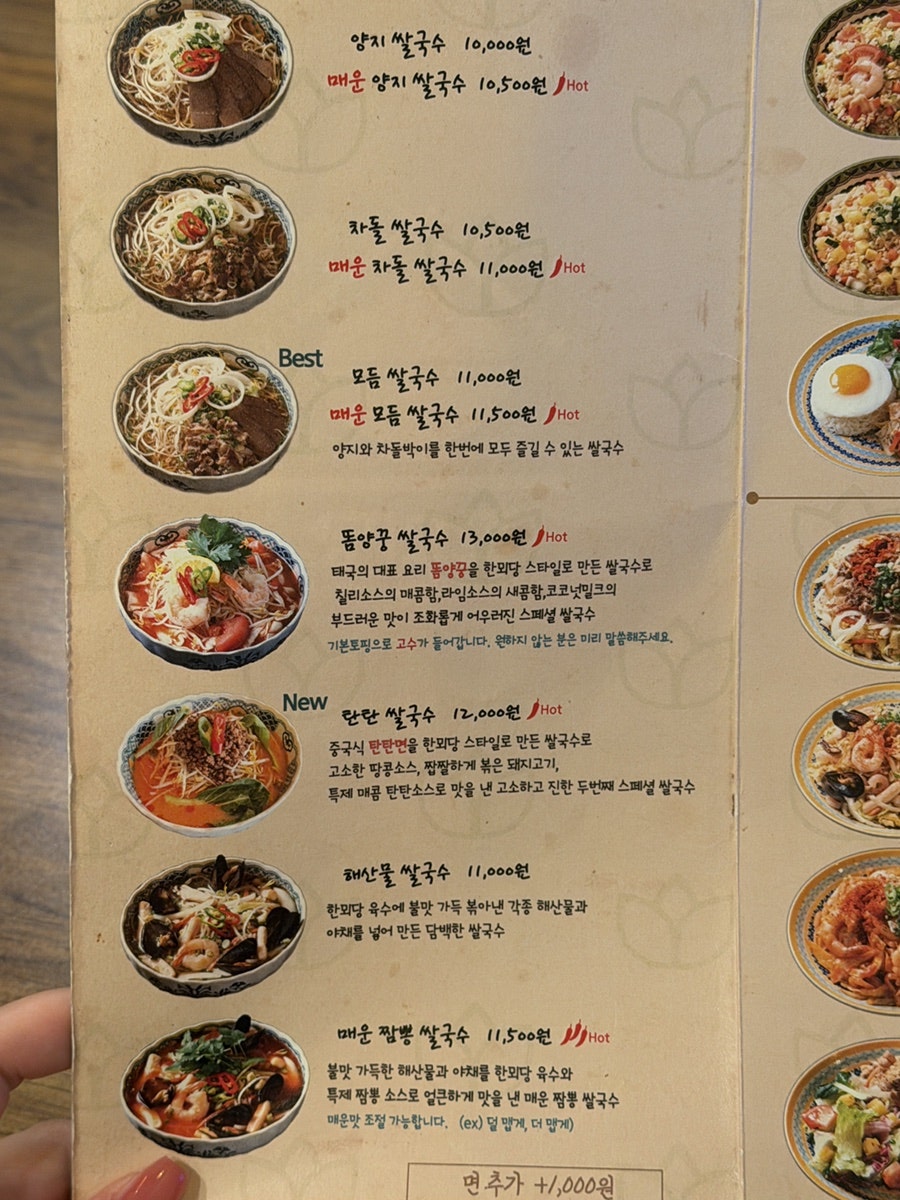 양지 쌀국수 10,000원
매운 양지 쌀국수 10,500원 Hot
차돌 쌀국수 10,500원
매운 차돌 쌀국수 11,000원 Hot
Best
모듬 쌀국수 11,000원
매운 모듬 쌀국수 11,500원 Hot
양지와 차돌박이를 한번에 모두 즐길 수 있는 쌀국수
똠양꿍 쌀국수 13,000원 Hot
태국의 대표 요리 똠양꿍을 한뫼당 스타일로 만든 쌀국수로
칠리소스의 매콤함,라임소스의 새콤함,코코넛밀크의
부드러운 맛이 조화롭게 어우러진 스페셜 쌀국수
기본토핑으로 고수가 들어갑니다. 원하지 않는 분은 미리 말씀해주세요.
New
탄탄 쌀국수 12,000원 Hot
중국식 탄탄면을 한뫼당 스타일로 만든 쌀국수로
고소한 땅콩소스, 짭짤하게 볶은 돼지고기,
특제 매콤 탄탄소스로 맛을 낸 고소하고 진한 두번째 스페셜 쌀국수
해산물 쌀국수 11,000원
한뫼당 육수에 불맛 가득 볶아낸 각종 해산물과
야채를 넣어 만든 담백한 쌀국수
매운 짬뽕 쌀국수 11,500원 Hot
불맛 가득한 해산물과 야채를 한뫼당 육수와
특제 짬뽕 소스로 얼큰하게 맛을 낸 매운 짬뽕 쌀국수
매운맛 조절 가능합니다. (ex) 덜 맵게, 더 맵게)
면 추가 +1,000원